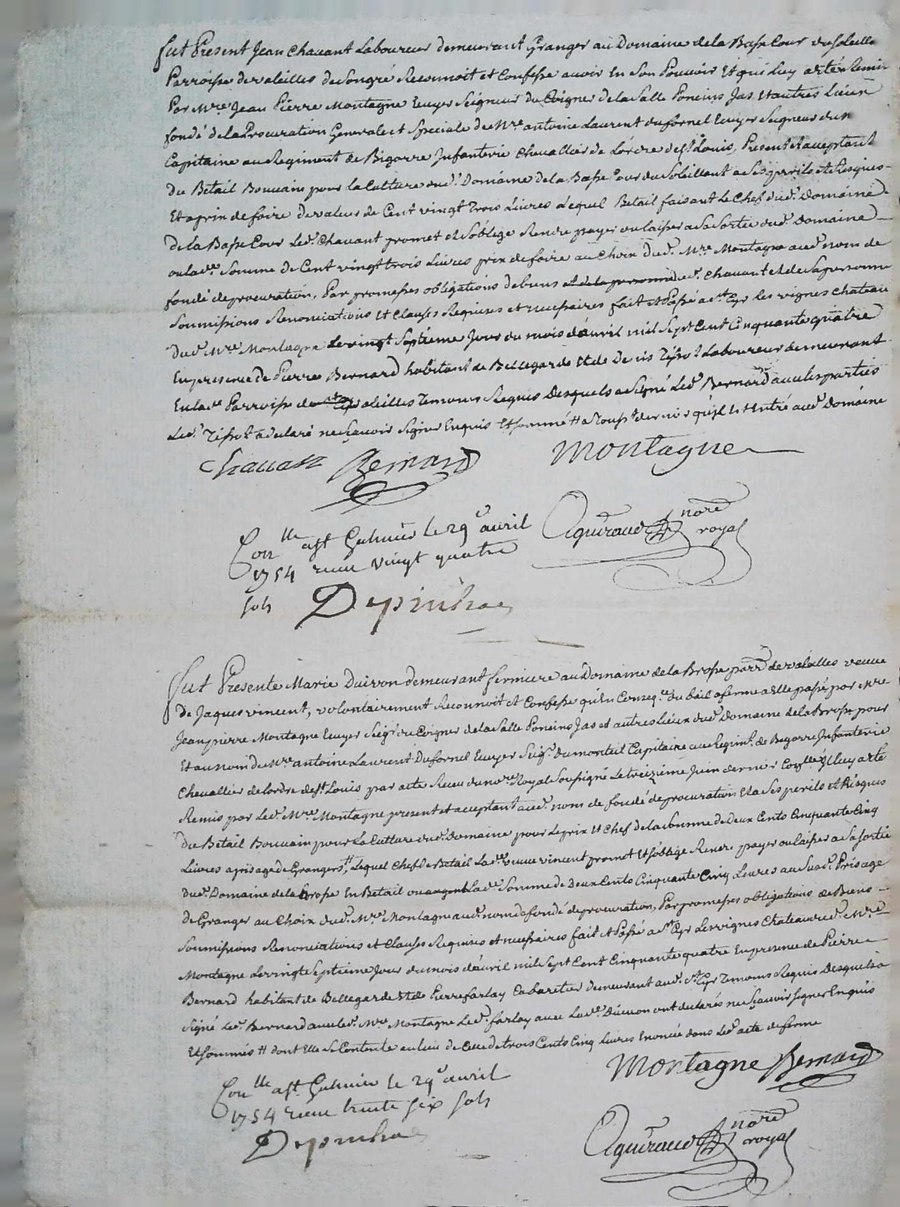 fut Present Jean Chavant Laboureur demeurant Granger au Domaine de la Basse Cour du soleill
Parroisse de valeilles de Songré Reconnoit et Confesse avoir En Son Pouvoir Et qui Luy a été Remis
Par Mre. Jean Pierre Montagne Ecuyer Seigneur du Coigner de la Salle Poncins Jas Et autres Lieux
fondé de la Procuration Generale et Speciale de Mre antoine Laurent dufornel Ecuyer Seigneur du
Capitaine au Regiment de Bigorre Infanterie Chevallier de Lordre de St. Louis, Present et acceptant
du Betail Bouvain pour la Culture dud. Domaine de la Basse Cour du Soleillant a Ses perils et Risques
Et a prix de foire de valeur de Cent vingt Trois Livres Lequel Betail faisant Le Chef dud. Domaine
de la Basse Cour Led. Chavant promet et Soblege Rendre payer ou laisser a Sa Sortie dud. Domaine
ou lade. Somme de Cent vingt trois Livres prix de foire au Choix dud. Mre. Montagne aud. nom de
fondé de procuration, Par promesses obligations de biens dud. Chavant et de Sa personne
Soumissions Renonciations Et Clauses Requises et necessaires fait et Passé a St. Cyr les vignes Chateau
dud. Mre. Montagne Le vingt Septieme Jour du mois d'avril mil Sept Cent Cinquante quatre
En presence de Pierre Bernard habitant de Bellegarde Et de Laboureur demeurant
En lade. Parroisse de valeilles Temoins Requis Desquels a Signé Led. Bernard avec les parties
Led. a declaré ne Sçavoir Signer Enquis Et Sommé # qu'il est Entré aud. Domaine
Chavan Bernard Montagne
Conlle. a St Galmier le 29e avril Aguiraud nore.
1754 receu vingt quatre royal
sols Depinhac
fut Presente Marie Duivon demeurant fermiere au Domaine de la Brosse parre. de valeilles veuve
de Jaques vincent, volontairement Reconnoit et Confesse qu'en Conseqce. du bail a ferme a Elle passé par Mre
Jean pierre Montagne Ecuyer Seigr. du Coigner de la Salle Poncins Jas et autres Lieux dud. Domaine de la Brosse pour
Et au nom de Mre antoine Laurent Dufornel Ecuyer Seigr. du monteil Capitaine au Regimt. de Bigorre Infanterie
Chevallier de lordre de St. Louis par acte Receu du nore. Royal Soussigné Le treizieme Juin dernier Luy a été
Remis par Led. Mre. Montagne present et acceptant aud. nom de fondé de procuration Et a Ses perils et Risques
du Betail Bouvain pour La Culture dud. Domaine pour Le prix Et Chef de la Somme de Deux Cents Cinquante Cinq
Livres a prisage de Grangers #, Lequel Chef de Betail Lad. veuve vincent promet Et soblige Rendre payer ou laisser a Sa Sortie
dud. Domaine de la Brosse En Betail ou argent Lade. Somme de Deux Cents Cinquante Cinq Livres au Susd. Prisage
de Granger au Choix dud. Mre. Montagne aud. nom de fondé de procuration, Par promesses obligations de Biens
Soumissions Renonciations et Clauses Requises et necessaires fait et Passé a St. Cyr Les vignes Chateau dud. Mre.
Montagne Le vingt Septieme Jour du mois d'avril mil Sept Cent Cinquante quatre En presence de Pierre
Bernard habitant de Bellegarde Et de Pierre farlay Cabaretier demeurant aud. St. Cyr Temoins Requis Desquels a
Signé Led. Bernard avec led. Mre. Montagne Led. farlay avec Lade. Duivon ont declarés ne Sçavoir Signer Enquis
Et Sommés # dont Elle Se Contente au lieu de Celle de trois Cents Cinq Livres Enoncée dans Led. acte de ferme
Montagne Bernard
Conlle. a St Galmier le 29e avril
1754 receu trente six sols
Depinhac Aguiraud nore. royal